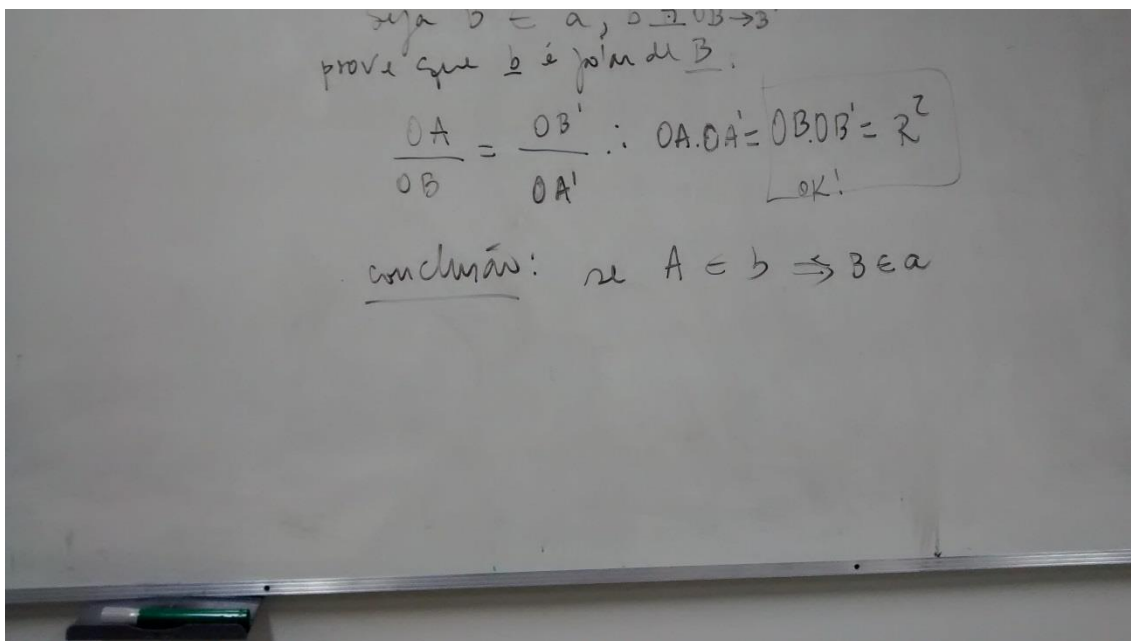 seja B ∈ a, b ⊥ OB → B'
prove que b é polar de B.
OA/OB = OB'/OA' ∴ OA.OA' = OB.OB' = R²
OK!
conclusão: se A ∈ b ⇒ B ∈ a